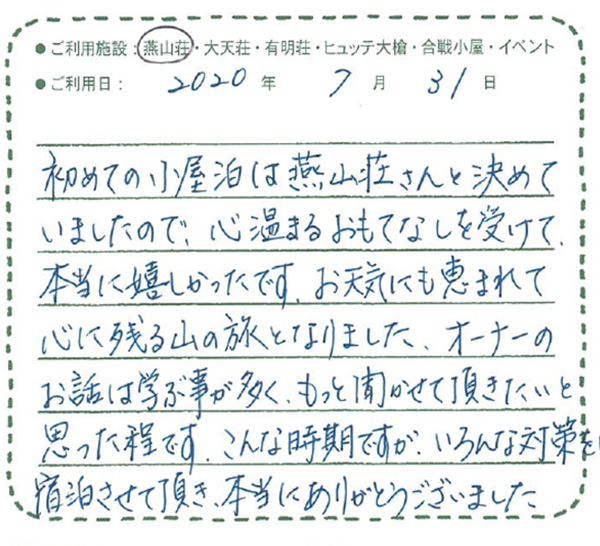 ●ご利用施設:燕山荘・大天荘・有明荘・ヒュッテ大槍・合戦小屋・イベント
●ご利用日: 2020 年 7 月 31 日
初めての小屋泊は燕山荘さんと決めて
いましたので、心温まるおもてなしを受けて、
本当に嬉しかったです。お天気にも恵まれて
心に残る山の旅となりました、オーナーの
お話は学ぶ事が多く、もっと聞かせて頂きたいと
思った程です。こんな時期ですが、いろんな対策を
宿泊させて頂き、本当にありがとうございました